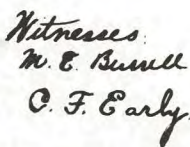 Witnesses:
M. E. Burrell
C. F. Early.